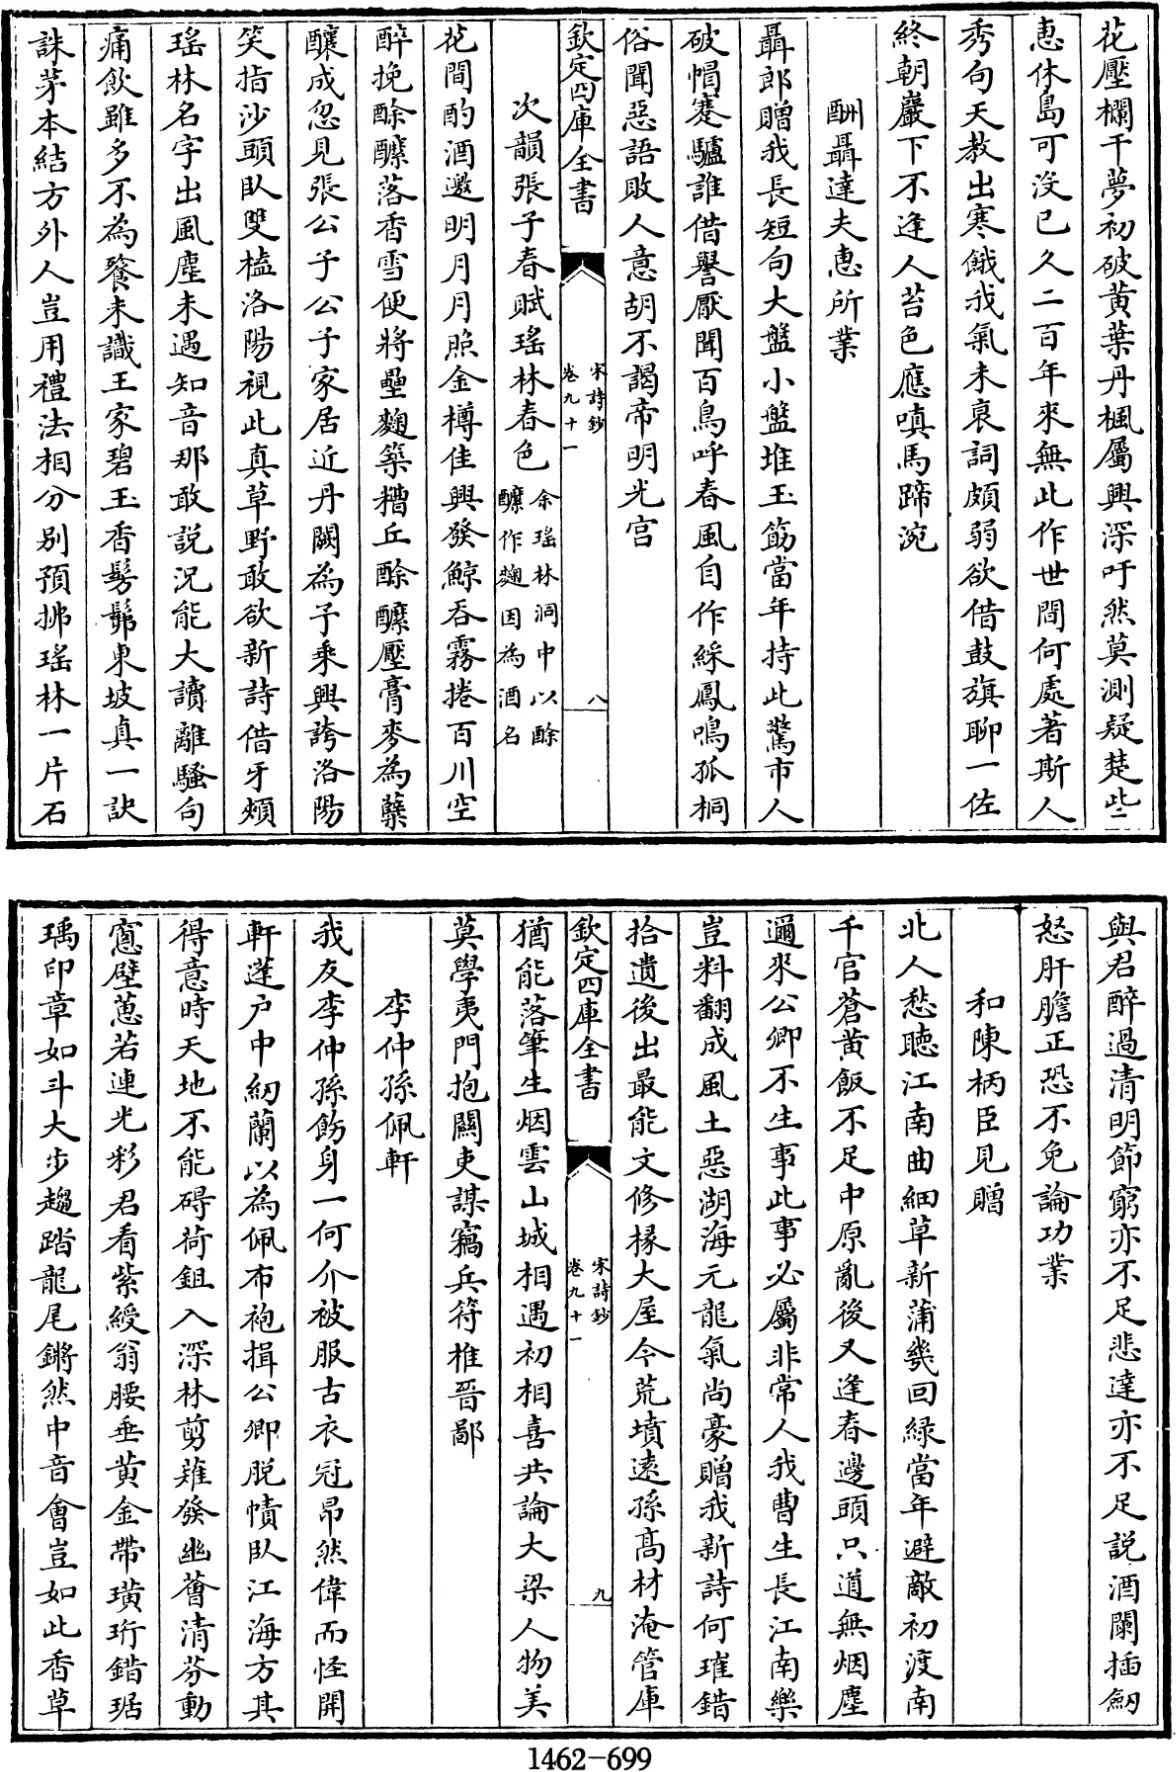 花壓欄干夢初破黄葉丹楓屬興深吁然莫測疑楚些
惠休島可沒已久二百年來無此作世間何處著斯人
秀句天教出寒餓我氣未衰詞頗弱欲借鼓旗聊一佐
終朝巖下不逢人苔色應嗔馬蹄涴
酬聶達夫惠所業
聶郎贈我長短句大盤小盤堆玉筯當年持此驚市人
破帽蹇驢誰借譽厭聞百鳥呼春風自作綵鳳鳴孤桐
俗聞惡語敗人意胡不謁帝明光宫
欽定四庫全書
宋詩鈔
卷九十一
八
次韻張子春賦瑤林春色
余瑶林洞中以酴
醿作麴因為酒名
花間酌酒邀明月月照金樽佳興發鯨吞霧捲百川空
醉挽酴醿落香雪便將壘麴築糟丘酴醿壓膏麥為蘖
釀成忽見張公子公子家居近丹闕為子乘興誇洛陽
笑指沙頭臥雙榼洛陽視此真草野敢欲新詩借牙頰
瑶林名字出風塵未遇知音那敢說況能大讀離騷句
痛飲雖多不為餮未識王家碧玉香髣髴東坡真一訣
誅茅本結方外人豈用禮法相分别預拂瑶林一片石
與君醉過清明節窮亦不足悲達亦不足說酒闌插劒
怒肝膽正恐不免論功業
和陳柄臣見贈
北人愁聽江南曲細草新蒲幾回緑當年避敵初渡南
千官蒼黄飯不足中原亂後又逢春邊頭只道無烟塵
邇來公卿不生事此事必屬非常人我曹生長江南樂
豈料翻成風土惡湖海元龍氣尚豪贈我新詩何璀錯
拾遺後出最能文修椽大屋今荒墳遠孫髙材淹管庫
欽定四庫全書
宋詩鈔
卷九十一
九
猶能落筆生烟雲山城相遇初相喜共論大梁人物美
莫學夷門抱關吏謀竊兵符椎晉鄙
李仲孫佩軒
我友李仲孫飭身一何介被服古衣冠昂然偉而怪開
軒蓬户中紉蘭以為佩布袍揖公卿脱幘臥江海方其
得意時天地不能碍荷鉏入深林剪薙發幽薈清芬動
窻壁蔥若連光彩君看紫綬翁腰垂黄金帶璜珩錯琚
瑀印章如斗大步趨踏龍尾鏘然中音會豈如此香草
1462-699